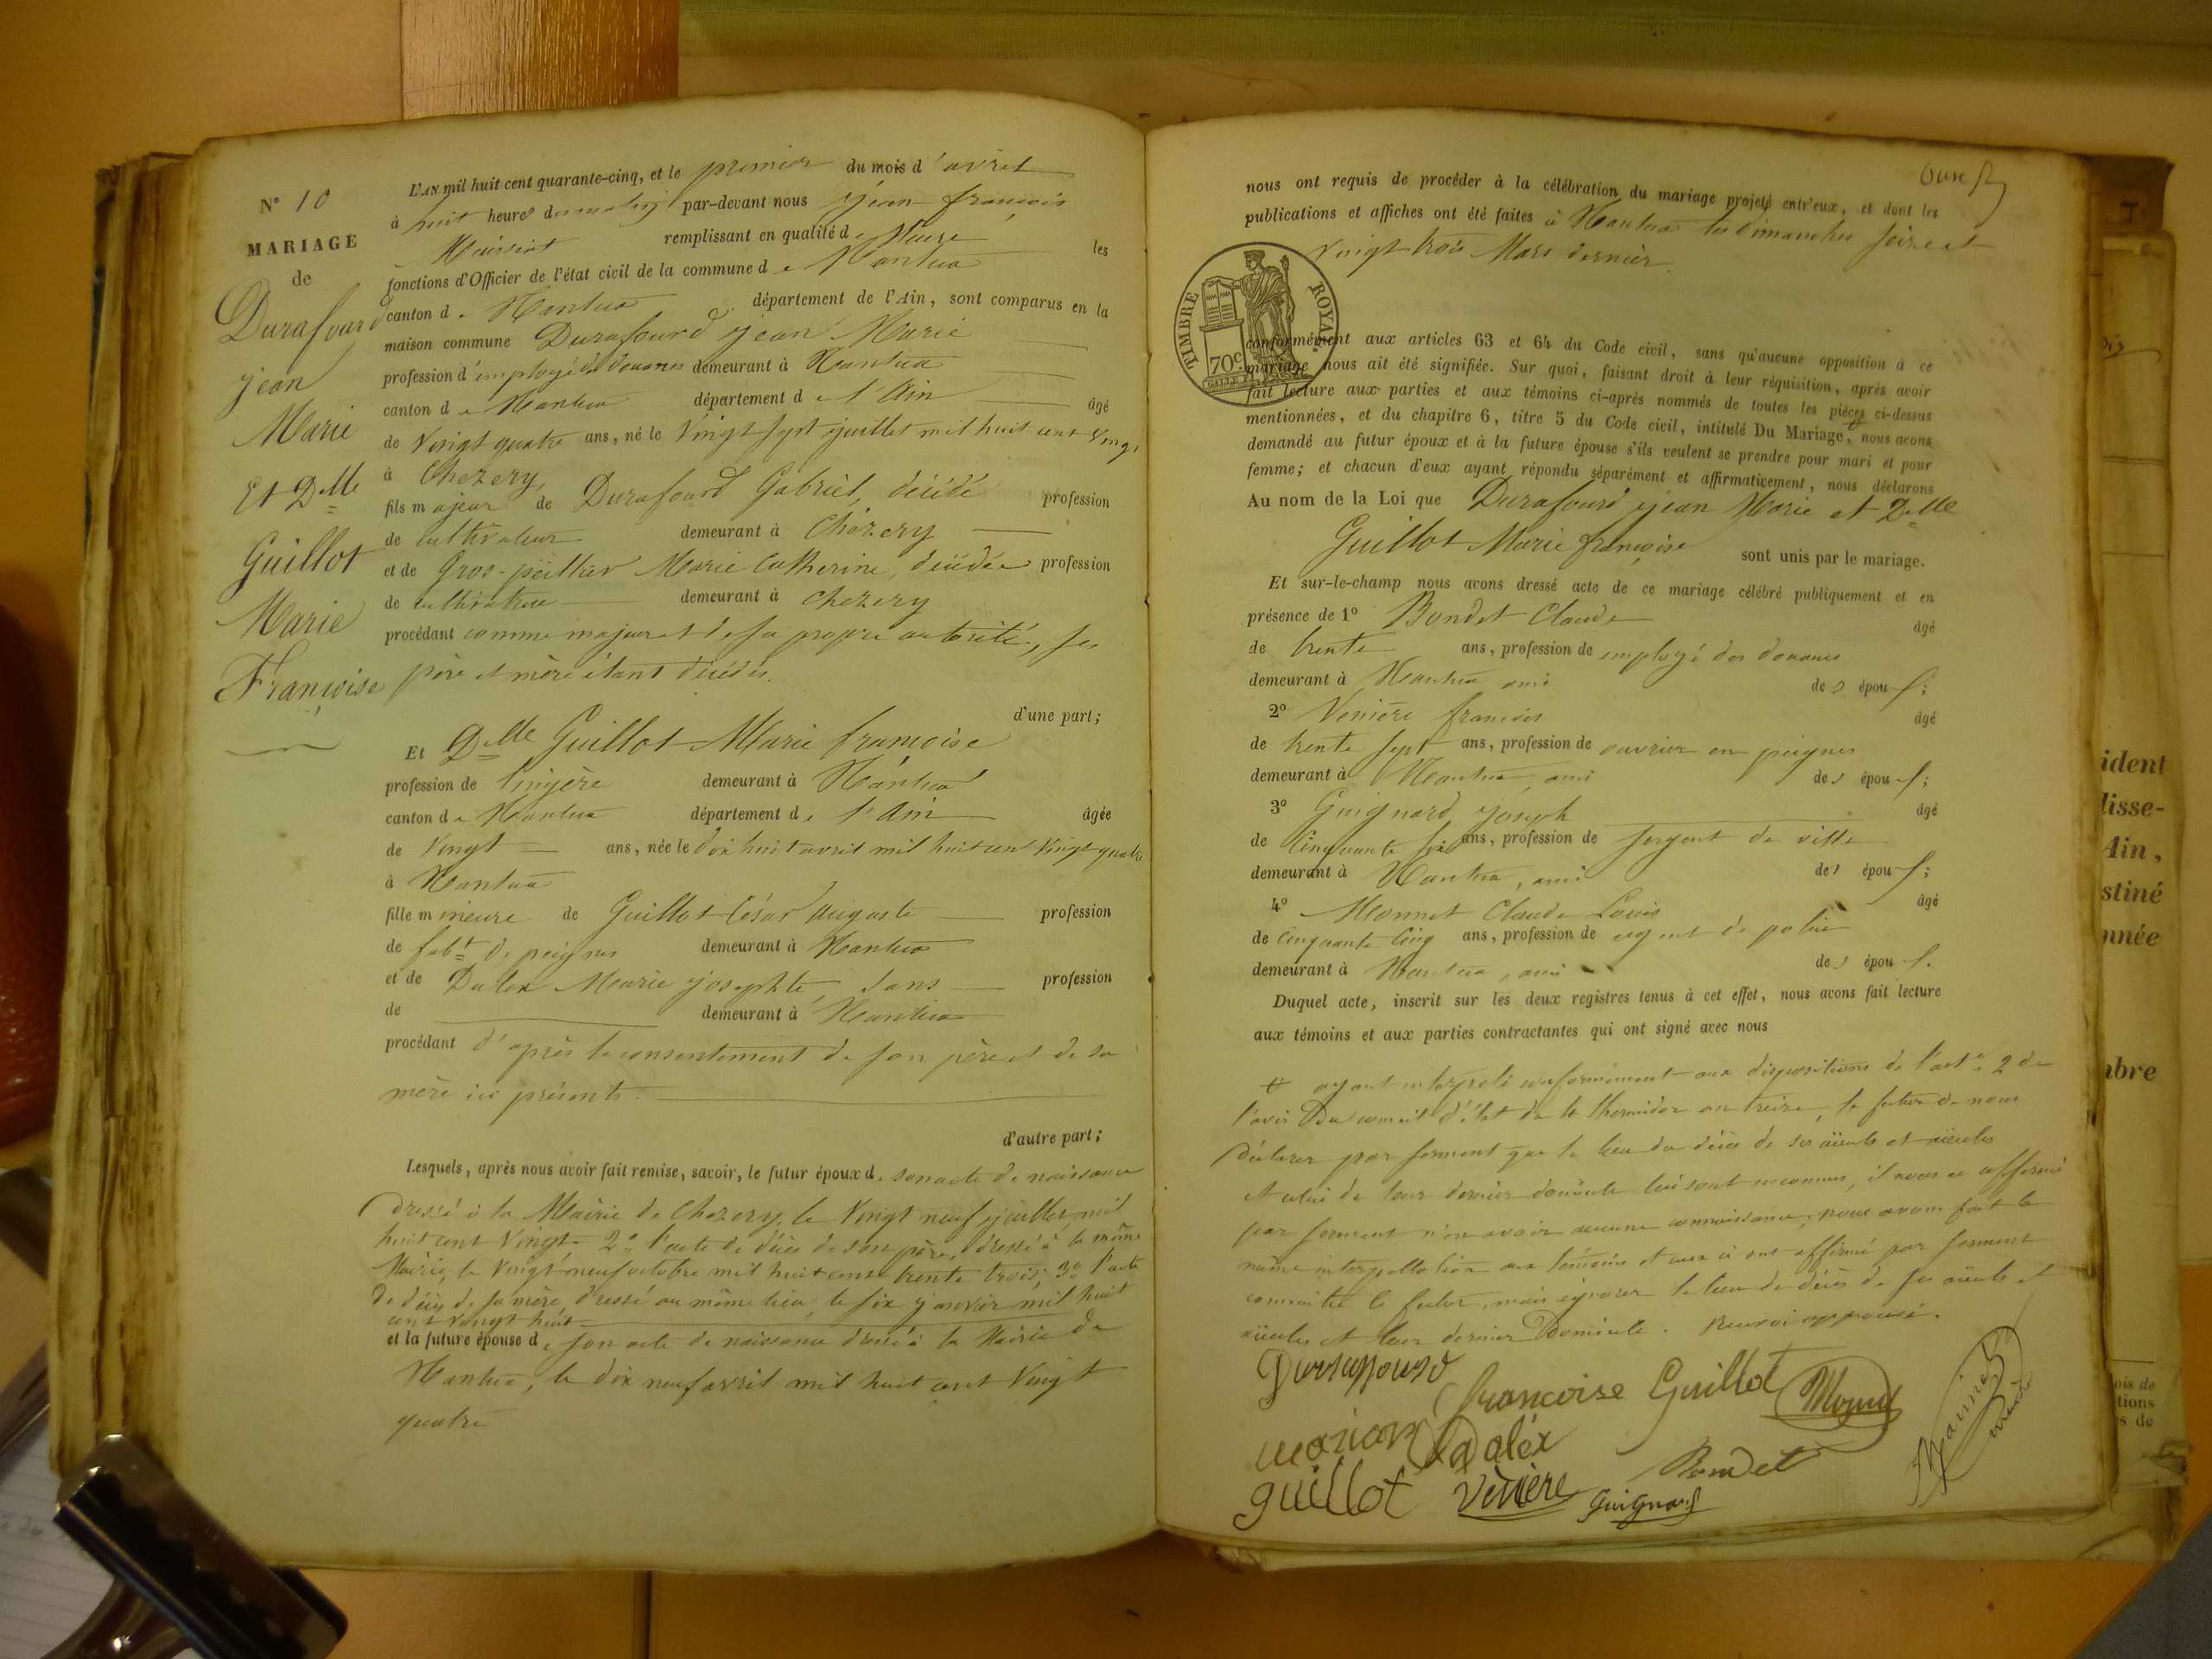 N° 10
MARIAGE
de
Durafourd
jean
Marie
Et Dlle
Guillot
Marie
Françoise
L'AN mil huit cent quarante-cinq, et le premier du mois d'avril
à huit heures du matin par-devant nous jean françois
remplissant en qualité de Maire les
fonctions d'Officier de l'état civil de la commune de Nantua
canton de Nantua département de l'Ain, sont comparus en la
maison commune Durafourd jean Marie
profession d'employé des douanes demeurant à Nantua
canton de Nantua département de l'Ain âgé
de Vingt quatre ans, né le Vingt sept juillet mil huit cent Vingt
à Chezery,
fils majeur de Durafourd Gabriel, décédé profession
de cultivateur demeurant à Chézery
et de Gros-peillier Marie Catherine, décédée profession
de cultivatrice demeurant à Chezery
procédant comme majeur et de sa propre autorité, ses
père et mère étant décédés.
d'une part;
Et Dlle Guillot Marie françoise
profession de lingère demeurant à Nantua
canton de Nantua département de l'Ain âgée
de Vingt ans, née le dix huit avril mil huit cent Vingt quatre
à Nantua
fille mineure de Guillot César Auguste profession
de fabt de peignes demeurant à Nantua
et de Dalex Marie josephte, sans profession
de demeurant à Nantua
procédant d'après le consentement de son père et de sa
mère ici présents.
d'autre part;
Lesquels, après nous avoir fait remise, savoir, le futur époux de son acte de naissance
dressé à la Mairie de Chezery, le Vingt neuf juillet mil
huit cent Vingt. 2° l'acte de décès de son père, dressé à la même
Mairie, le Vingt neuf octobre mil huit cent trente trois; 3° l'acte
de décès de sa mère, dressé au même lieu, le six janvier mil huit
cent vingt huit
et la future épouse de son acte de naissance dressé à la Mairie de
Nantua, le dix neuf avril mil huit cent Vingt
quatre
Onze
nous ont requis de procéder à la célébration du mariage projeté entr'eux, et dont les
publications et affiches ont été faites à Nantua les dimanches seize et
Vingt trois Mars dernier.
TIMBRE ROYAL.
70c
conformément aux articles 63 et 64 du Code civil, sans qu'aucune opposition à ce
mariage nous ait été signifiée. Sur quoi, faisant droit à leur réquisition, après avoir
fait lecture aux parties et aux témoins ci-après nommés de toutes les pièces ci-dessus
mentionnées, et du chapitre 6, titre 5 du Code civil, intitulé Du Mariage, nous avons
demandé au futur époux et à la future épouse s'ils veulent se prendre pour mari et pour
femme; et chacun d'eux ayant répondu séparément et affirmativement, nous déclarons
Au nom de la Loi que Durafourd jean Marie et Dlle
Guillot Marie françoise sont unis par le mariage.
Et sur-le-champ nous avons dressé acte de ce mariage célébré publiquement et en
présence de 1° Bondet Claude âgé
de trente ans, profession de employé des douanes
demeurant à Nantua ami des épou s;
2° Venière françois âgé
de trente sept ans, profession de ouvrier en peignes
demeurant à Nantua, ami des épou s;
3° Guignard joseph âgé
de Cinquante six ans, profession de sergent de ville
demeurant à Nantua, ami des épou s;
4° Monnet Claude Louis âgé
de cinquante cinq ans, profession de agent de police
demeurant à Nantua, ami des épou s.
Duquel acte, inscrit sur les deux registres tenus à cet effet, nous avons fait lecture
aux témoins et aux parties contractantes qui ont signé avec nous
ayant interpelé conformément aux dispositions de l'art. 2 de
l'avis du conseil d'état du 4 thermidor an treize, le futur de nous
déclarer par serment que le lieu du décès de ses aïeuls et aïeules
et celui de leur dernier domicile lui sont inconnus, il nous a affirmé
par serment n'en avoir aucune connaissance; nous avons fait la
même interpellation aux témoins et ceux ci ont affirmé par serment
connaître le futur, mais ignorer le lieu du décès de ses aïeuls et
aïeules et leur dernier Domicile. Renvoi approuvé.
Durafourd
françoise Guillot
Dalex
guillot
Vènière
Bondet
Guignard